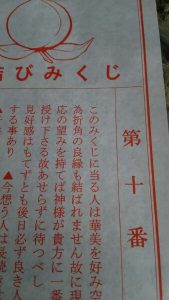 結びみくじ
第十番
このみくじに当る人は華美を好み空
為折角の良縁も結ばれません故に現
応の望みを持てば神様が貴方に一番
授け下さる故あせらずに待つべし
見好感はもてずとも後日必ず良き人
する事あり
▲今想う人は長続き